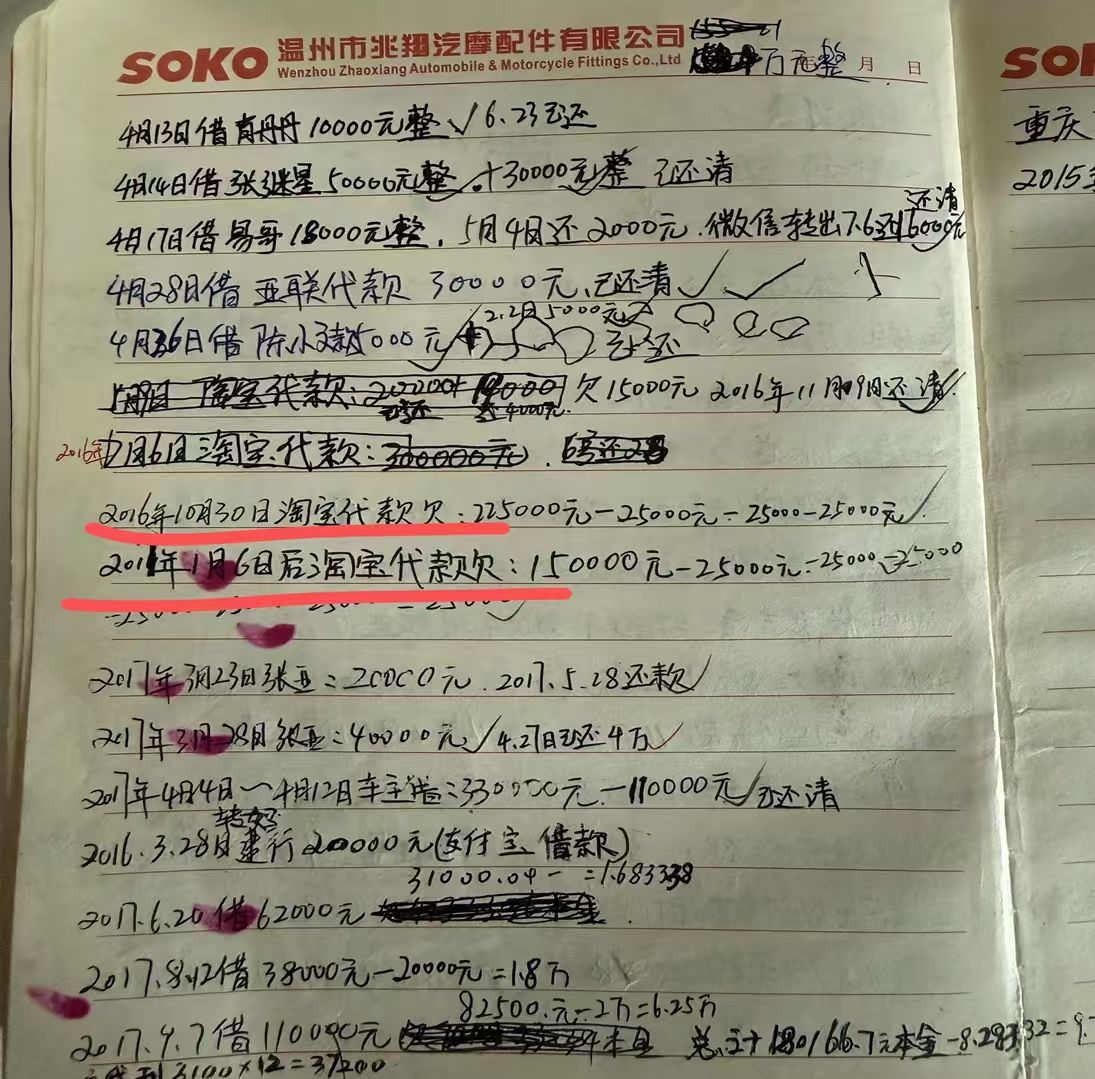 SOKO 温州市兆翔汽摩配件有限公司 SOK
Wenzhou Zhaoxiang Automobile & Motorcycle Fittings Co.,Ltd
万元整 月 日
4月13日借肖丹丹10000元整√6.23已还
重庆
4月14日借张继星50000元整√+30000元整 已还清
2015
还清
4月17日借易哥18000元整,5月4日还2000元.微信转出
4月28日借亚联代款30000元,已还清√√
2.2日5000元
陈小 5000元 已还
淘宝代款: 欠15000元 2016年11月19日还清√
还4000元.
2016年7月6日淘宝代款:300000元.
2016年10月30日淘宝代款欠:225000元-25000元-25000-25000元√
1月6日后淘宝代款欠:150000元-25000元-25000-25000
-25000 -25000√
2017年3月23日张亚:20000元.2017.5.28还款√
2017年3月28日张亚:40000元√4.27日已还4万√
2017年4月4日~4月12日车主借:330000元-110000元√已还清
2016.3.28日建行200000元(支付宝借款)
31000.04- =1.683338
2017.6.20借62000元
2017.8.12借38000元-20000元=1.8万
82500.元-2万=6.25万
2017.9.7借110000元 总计180166.7元本金-8.28332=9.
3100×12=37200